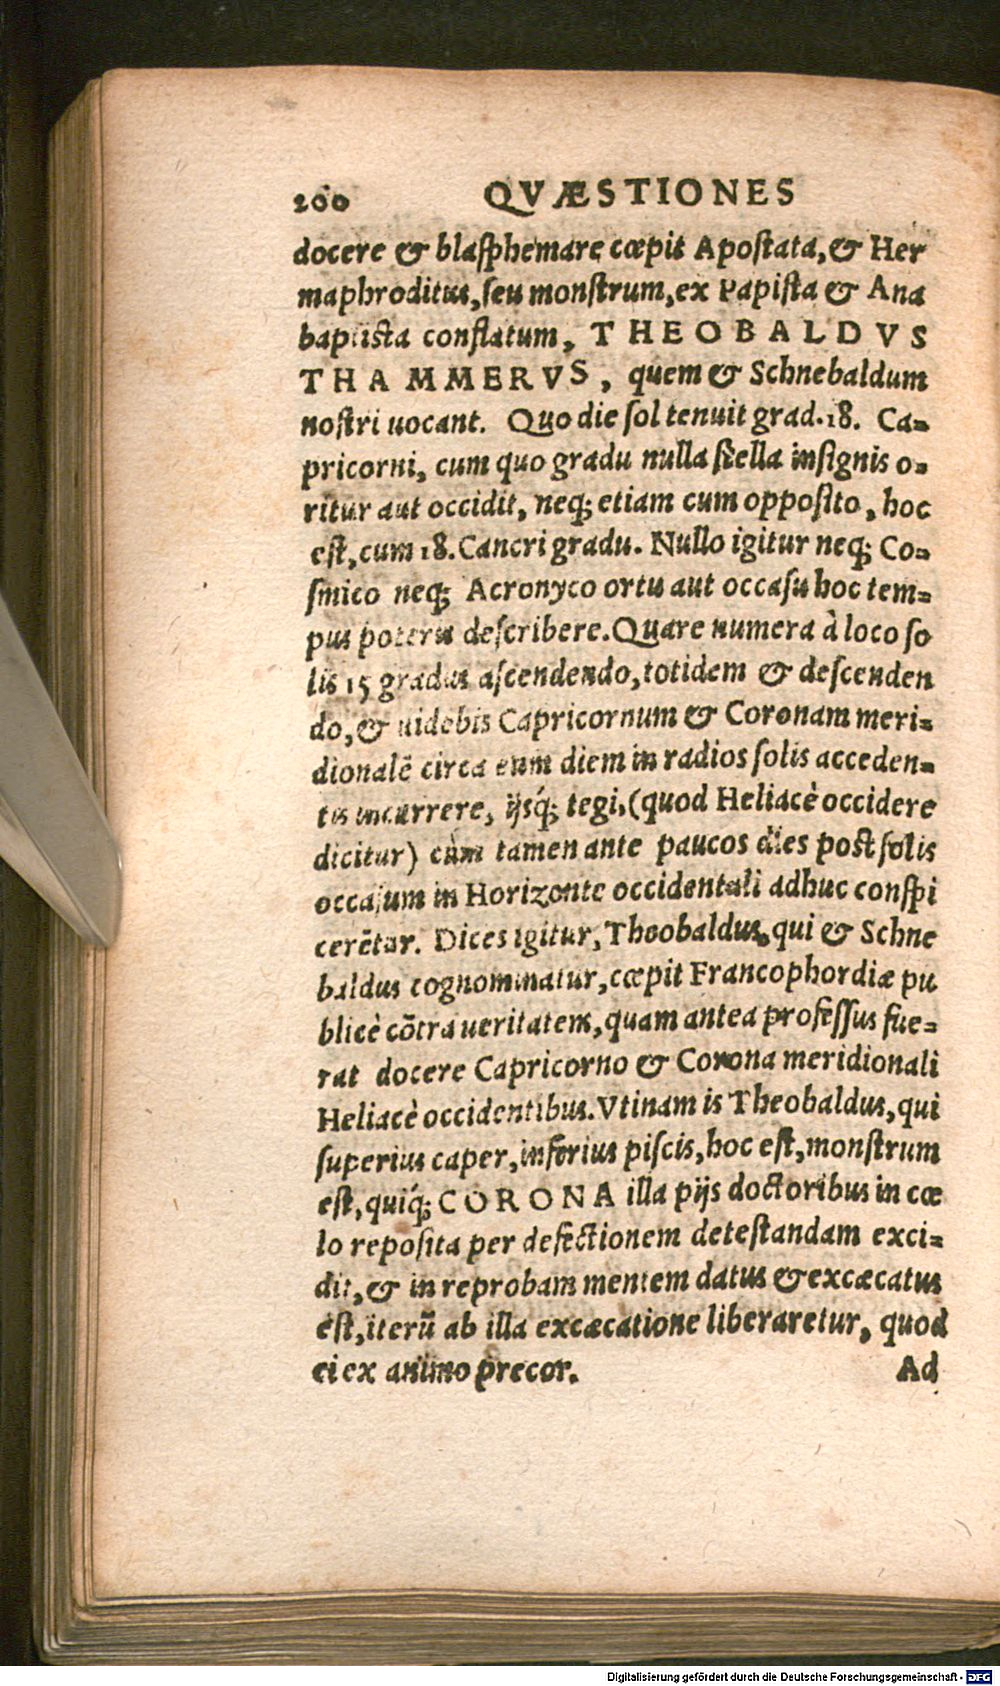 200 QVÆSTIONES
docere & blasphemare cœpit Apostata, & Her
maphroditus, seu monstrum, ex Papista & Ana
baptista conflatum, THEOBALDVS
THAMMERVS, quem & Schnebaldum
nostri uocant. Quo die sol tenuit grad. 18. Ca=
pricorni, cum quo gradu nulla stella insignis o=
ritur aut occidit, neq; etiam cum opposito, hoc
est, cum 18. Cancri gradu. Nullo igitur neq; Co=
smico neq; Acronyco ortu aut occasu hoc tem=
pus poteris describere. Quare numera à loco so
lis 15 gradus ascendendo, totidem & descenden
do, & uidebis Capricornum & Coronam meri=
dionalē circa eum diem in radios solis acceden=
tis incurrere, ijsq́; tegi, (quod Heliacè occidere
dicitur) cùm tamen ante paucos dies post solis
occasum in Horizonte occidentali adhuc conspi
cerētur. Dices igitur, Theobaldus, qui & Schne
baldus cognominatur, cœpit Francophordiæ pu
blicè cōtra ueritatem, quam antea professus fue=
rat docere Capricorno & Corona meridionali
Heliacè occidentibus. Vtinam is Theobaldus, qui
superius caper, inferius piscis, hoc est, monstrum
est, quiq́; CORONA illa pijs doctoribus in cœ
lo reposita per defectionem detestandam exci=
dit, & in reprobam mentem datus & excæcatus
est, iterū ab illa excæcatione liberaretur, quod
ei ex animo precor. Ad
Digitalisierung gefördert durch die Deutsche Forschungsgemeinschaft - DFG